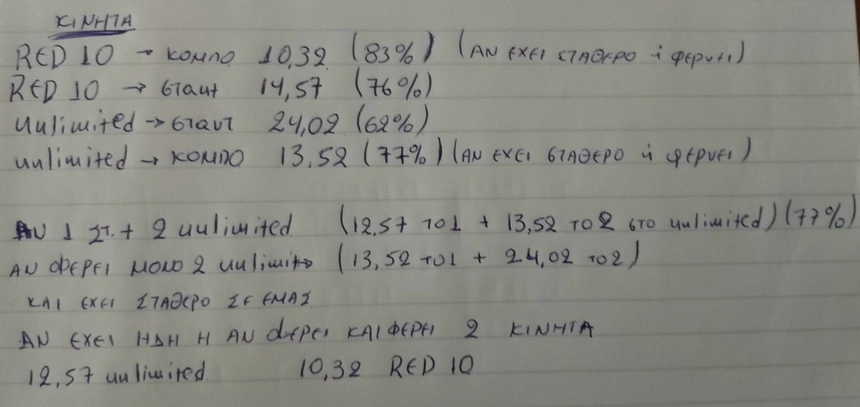 ΚΙΝΗΤΑ
RED 10 → ΚΟΜΠΟ 10,32 (83%) (ΑΝ ΕΧΕΙ ΣΤΑΘΕΡΟ ή φερνει)
RED 10 → σταντ 14,57 (76%)
unlimited → σταντ 24,02 (62%)
unlimited → ΚΟΜΠΟ 13,52 (77%) (ΑΝ ΕΧΕΙ ΣΤΑΘΕΡΟ ή φερνει)
ΑΝ 1 ΣΤ. + 2 unlimited (12,57 το1 + 13,52 το 2 στο unlimited) (77%)
ΑΝ ΦΕΡΕΙ ΜΟΝΟ 2 (13,52 το1 + 24,02 το2)
ΚΑΙ ΕΧΕΙ ΣΤΑΘΕΡΟ ΣΕ ΕΜΑΣ
ΑΝ ΕΧΕΙ ΗΔΗ Η ΑΝ ΦΕΡΕΙ ΚΑΙ ΦΕΡΕΙ 2 ΚΙΝΗΤΑ
12,57 unlimited 10,32 RED 10